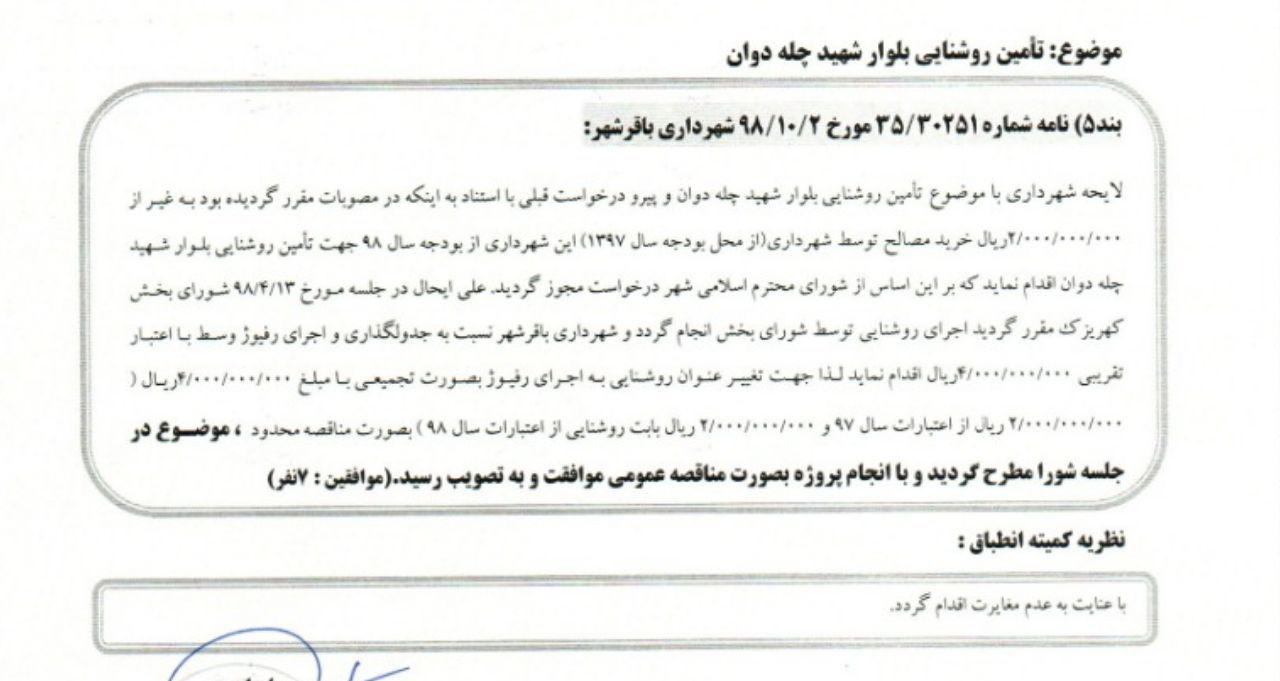 موضوع: تأمین روشنایی بلوار شهید چله دوان
بند۵) نامه شماره ۳۵/۳۰۲۵۱ مورخ ۹۸/۱۰/۲ شهرداری باقرشهر:
لایحه شهرداری با موضوع تأمین روشنایی بلوار شهید چله دوان و پیرو درخواست قبلی با استناد به اینکه در مصوبات مقرر گردیده بود به غیر از
۲/۰۰۰/۰۰۰/۰۰۰ریال خرید مصالح توسط شهرداری(از محل بودجه سال ۱۳۹۷) این شهرداری از بودجه سال ۹۸ جهت تأمین روشنایی بلوار شهید
چله دوان اقدام نماید که بر این اساس از شورای محترم اسلامی شهر درخواست مجوز گردید. علی ایحال در جلسه مورخ ۹۸/۴/۱۳ شورای بخش
کهریزک مقرر گردید اجرای روشنایی توسط شورای بخش انجام گردد و شهرداری باقرشهر نسبت به جدولگذاری و اجرای رفیوژ وسط با اعتبار
تقریبی ۴/۰۰۰/۰۰۰/۰۰۰ریال اقدام نماید لذا جهت تغییر عنوان روشنایی به اجرای رفیوژ بصورت تجمیعی با مبلغ ۴/۰۰۰/۰۰۰/۰۰۰ریال (
۲/۰۰۰/۰۰۰/۰۰۰ ریال از اعتبارات سال ۹۷ و ۲/۰۰۰/۰۰۰/۰۰۰ ریال بابت روشنایی از اعتبارات سال ۹۸ ) بصورت مناقصه محدود ، موضوع در
جلسه شورا مطرح گردید و با انجام پروژه بصورت مناقصه عمومی موافقت و به تصویب رسید.(موافقین : ۷نفر)
نظریه کمیته انطباق :
با عنایت به عدم مغایرت اقدام گردد.